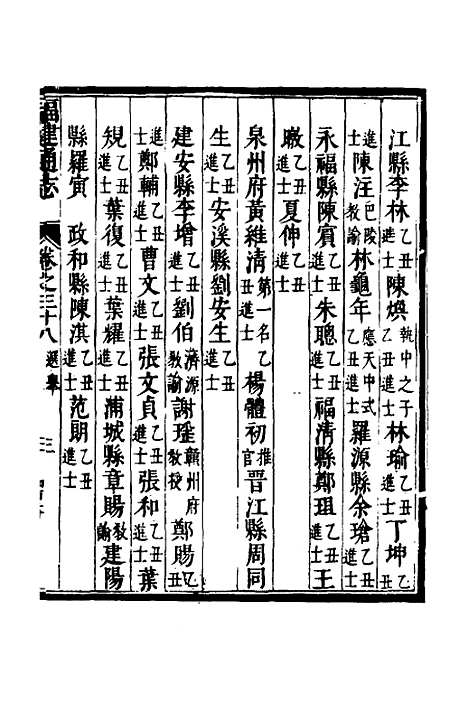 江縣李林乙丑進士陳焕執中之子林瑜乙丑進士丁坤乙丑
進士陳汪巴陵教諭林龜年應天中式乙丑進士羅源縣余瑲乙丑進士
永福縣陳賓乙丑進士朱聰乙丑進士福清縣鄭珇乙丑進士王
璥乙丑進士夏伸乙丑進士
泉州府黃維清第一名乙丑進士楊體初推官晋江縣周同
生乙丑進士安溪縣劉安生乙丑進士
建安縣李增乙丑進士劉伯濟源教諭謝瑤贑州府教授鄭賜乙丑
進士鄭輔乙丑進士曹文乙丑進士張文貞乙丑進士張和乙丑進士葉
䂓乙丑進士葉復乙丑進士葉耀乙丑進士浦城縣章賜教諭建陽
縣羅寅 政和縣陳淇乙丑進士范朗乙丑進士
福建通志 卷之三十八 選舉 三